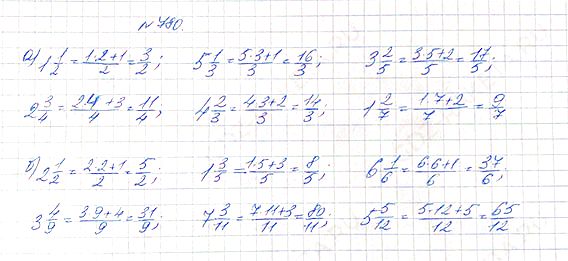 №780.
а) 1 1/2 = (1·2+1)/2 = 3/2; 5 1/3 = (5·3+1)/3 = 16/3; 3 2/5 = (3·5+2)/5 = 17/5;
2 3/4 = (2·4+3)/4 = 11/4; 4 2/3 = (4·3+2)/3 = 14/3; 1 2/7 = (1·7+2)/7 = 9/7
б) 2 1/2 = (2·2+1)/2 = 5/2; 1 3/5 = (1·5+3)/5 = 8/5; 6 1/6 = (6·6+1)/6 = 37/6;
3 4/9 = (3·9+4)/9 = 31/9; 7 3/11 = (7·11+3)/11 = 80/11; 5 5/12 = (5·12+5)/12 = 65/12